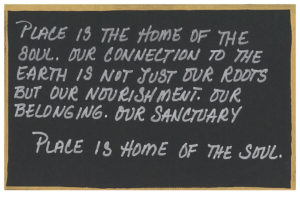 PLACE IS THE HOME OF THE
SOUL. OUR CONNECTION TO THE
EARTH IS NOT JUST OUR ROOTS
BUT OUR NOURISHMENT. OUR
BELONGING. OUR SANCTUARY
PLACE IS HOME OF THE SOUL.